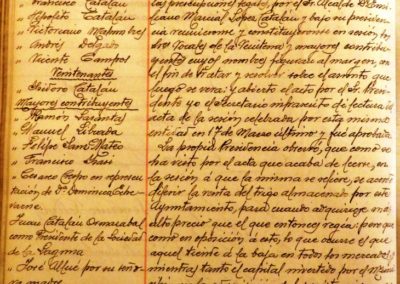 Francisco Catalán
" Hipólito Catalán
" Victoriano
" Andrés Delgado
" Vicente Campos
Veintenantes
" Isidoro Catalán
Mayores contribuyentes
" Ramón
" Manuel
" Felipe San Mateo
" Francisco
" Crespo en represen-
tación de Dª Dominica Eche-
Juan Catalán
como Presidente de la Sociedad
de la
" José por su seño-
ra madre
por el Sr. Alcalde D. Emi-
liano Manuel López Catalán y bajo su presiden-
cia y constituyeron en sesión, los
Sres. Vocales de la y mayores contribu-
yentes cuyos nombres figuran al margen, con
el fin de tratar y resolver sobre el asunto que
luego se verá: y abierto el acto por el Sr. Presi-
dente yo el Secretario infrascrito di lectura al
acta de la sesión celebrada por esta misma
entidad en 17 de Marzo último y fué aprobada
La propia Presidencia observó, que como se
ha visto por el acta que acaba de leerse, en
la sesión á que la misma se refiere, se acordó
diferir la venta del trigo almacenado por este
Ayuntamiento, para cuando adquiriese más
alto precio que el que entonces regía; pero que
como en oposición a esto, lo que ocurre es que
aquel tiende á la baja en todos los mercados y
mientras tanto el capital invertido por el